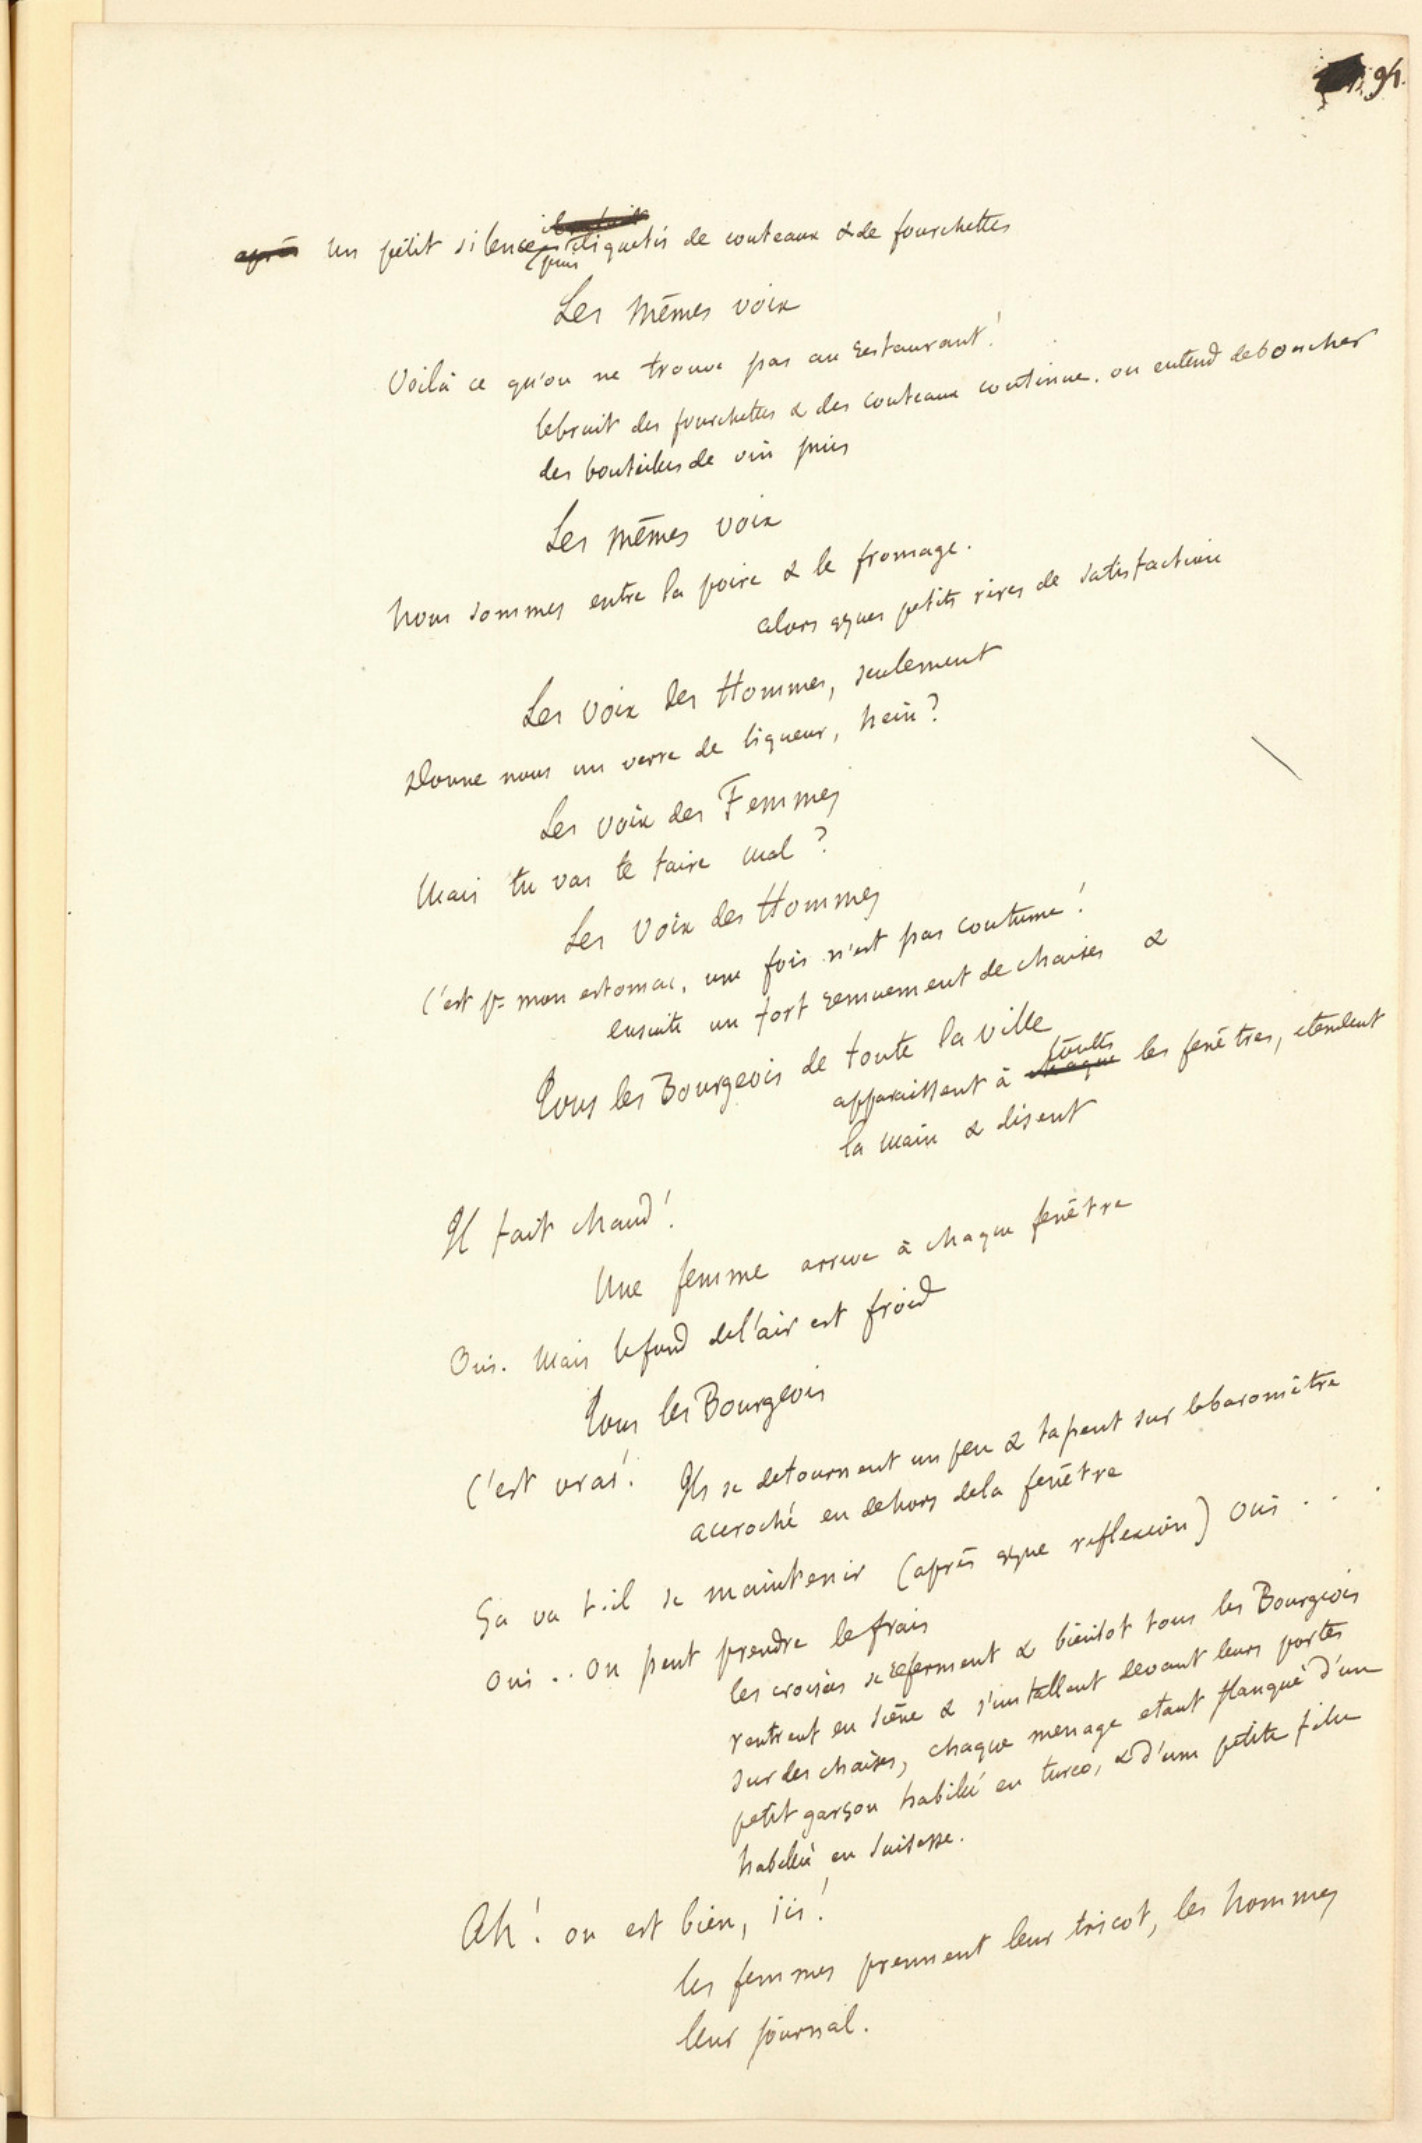 94.
après un petit silence puis cliquetis de couteaux & de fourchettes
Les mêmes voix
Voilà ce qu'on ne trouve pas au restaurant!
le bruit des fourchettes & des couteaux continue. on entend deboucher
des bouteilles de vin puis
Les mêmes voix
Nous sommes entre la poire & le fromage.
alors qques petits rires de satisfaction
Les voix des Hommes, seulement
Donne nous un verre de liqueur, hein?
Les voix des Femmes
Mais tu vas te faire mal?
Les Voix des Hommes
C'est pr mon estomac, une fois n'est pas coutume!
ensuite un fort remuement de chaises &
Tous les Bourgeois de toute la ville
apparaissent à chaque toutes les fenêtres, etendent
la main & disent
Il fait chaud!
Une femme arrive à chaque fenêtre
Oui. Mais le fond de l'air est froid
Tous les Bourgeois
C'est vrai! Ils se detournent un peu & tapent sur le baromètre
accroché en dehors de la fenêtre
Ça va t-il se maintenir (après qque reflexion) Oui . . .
Oui .. On peut prendre le frais
les croisées se referment & bientot tous les Bourgeois
rentrent en scène & s'installent devant leurs portes
sur des chaises, chaque menage etant flanqué d'un
petit garçon habillé en turco, & d'une petite fille
habillée en Suissesse.
Ah! on est bien, ici!
les femmes prennent leur tricot, les hommes
leur journal.